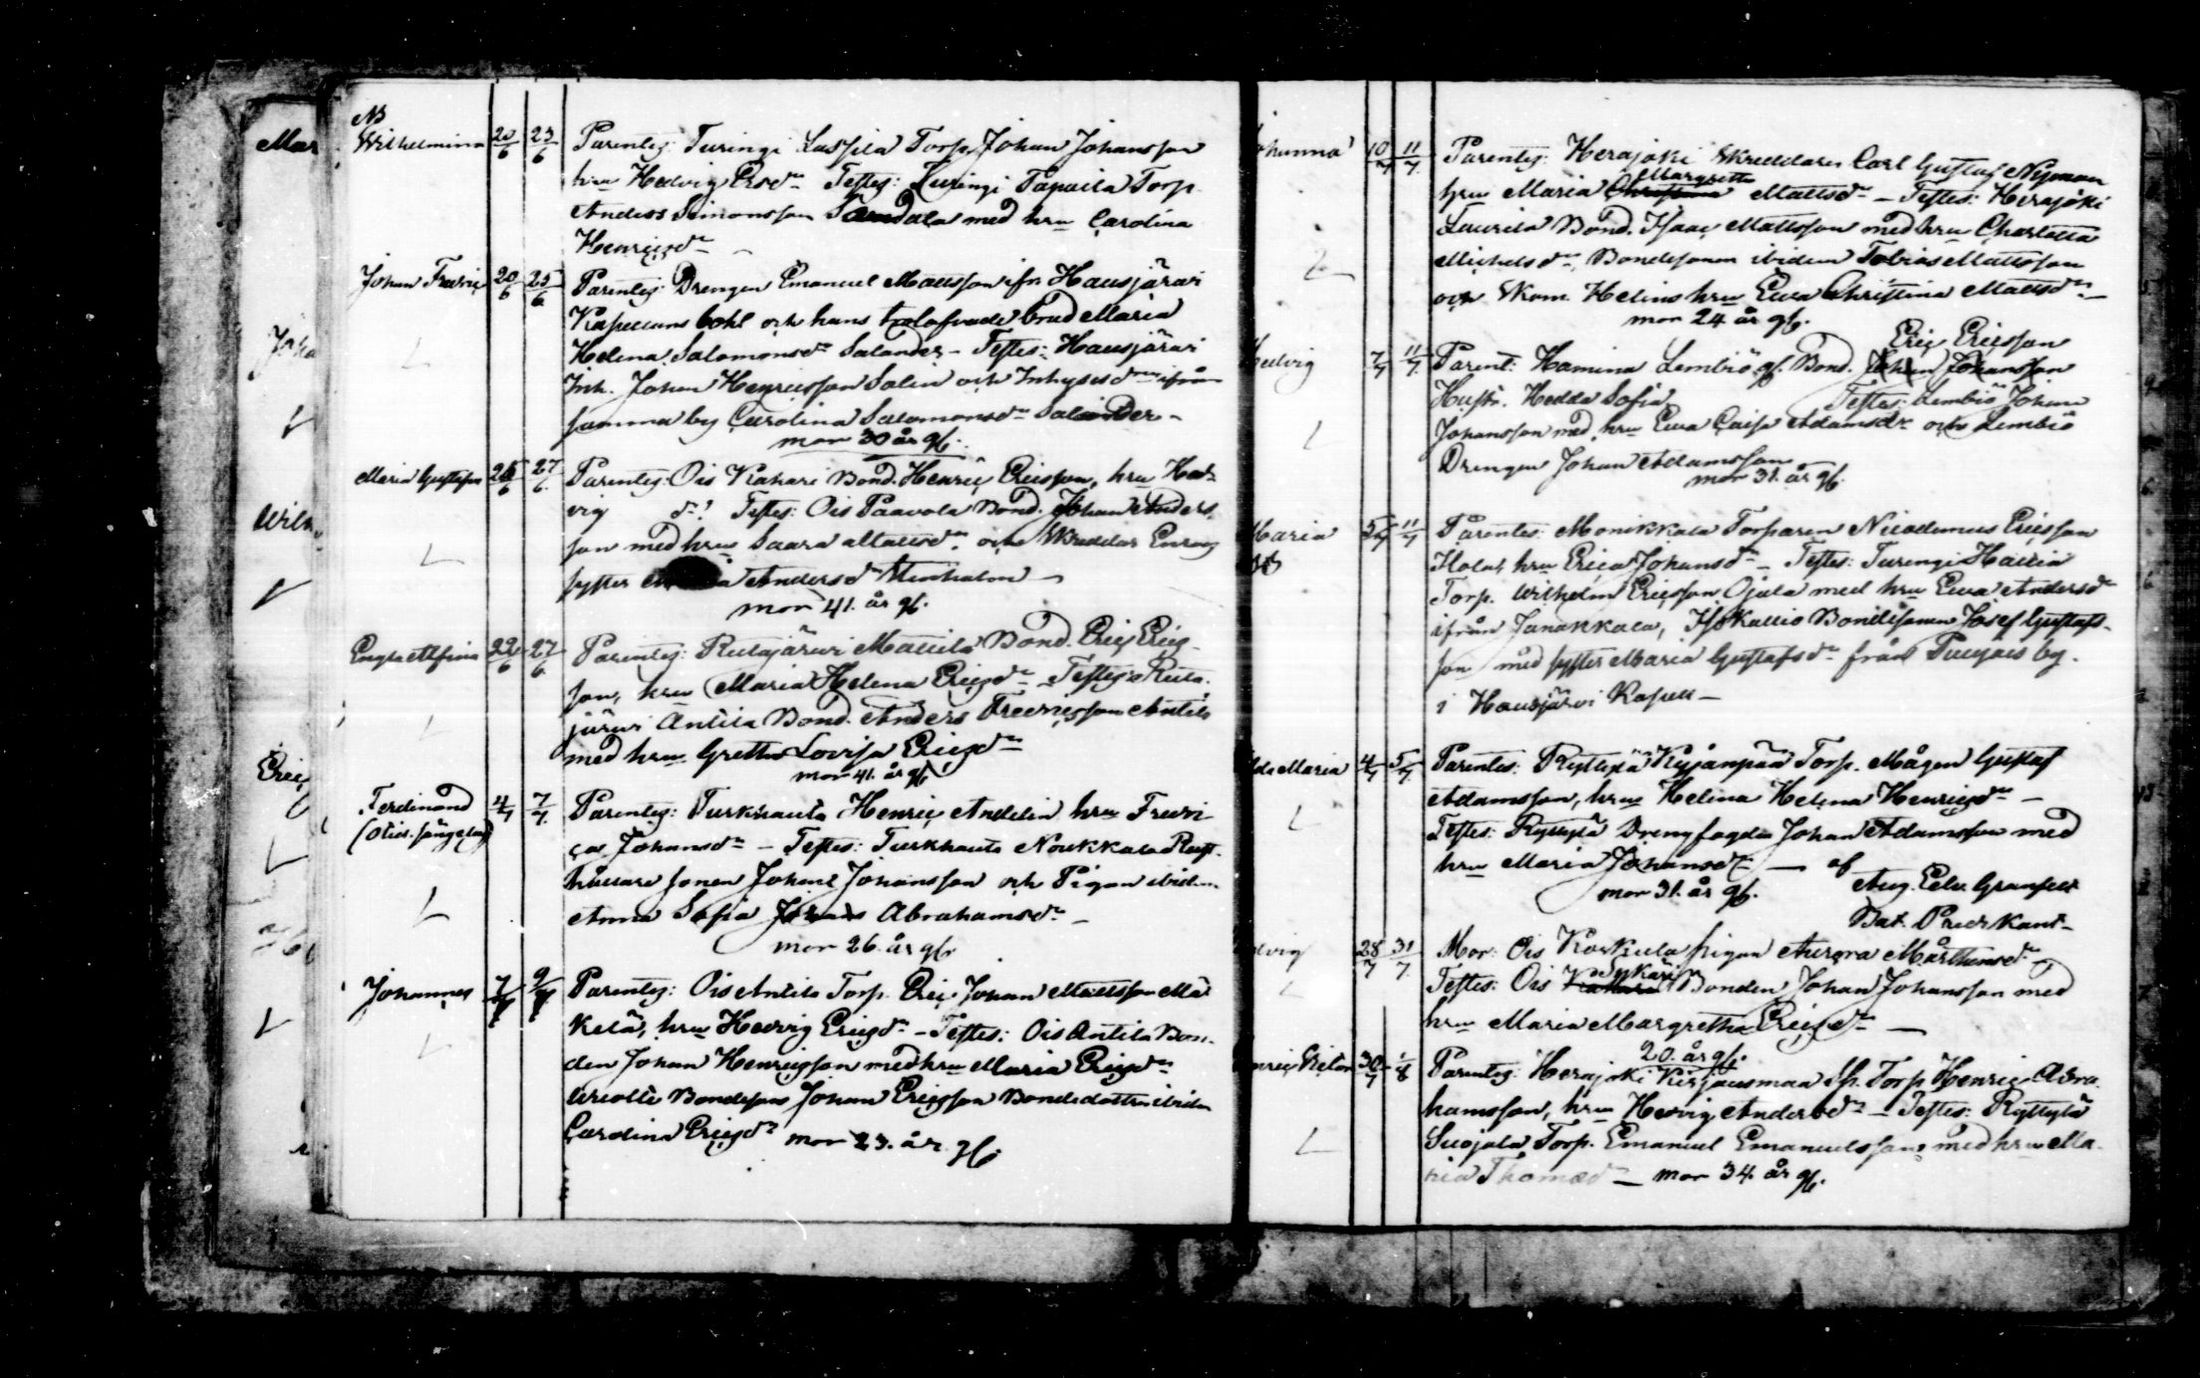 NB
Wilhelmina 20/6 23/6 Parentes: Turingi Lassila Torp. Johan Johansson
hru Hedvig Ersdr Testes: Turingi Tapaila Torp.
Anders Simonsson Sandala med hru Carolina
Henricsdr
Johan Fredric 20/6 25/6 Parentes: Drengen Emanuel Mattsson ifr Hausjärvi
Kapellans bohl och hans trolofvade brud Maria
Helena Salomonsdr Salander - Testes: Hausjärvi
Inh. Johan Henricsson Salin och Inhyses ifrån
samma by Carolina Salomonsdr Salander -
mor 30 år gl.
Maria Gustafva 26/6 27/6 Parentes: Ois Kahari Bond. Henric Ericsson, hru Hed-
vig dr! Testes: Ois Paavola Bond. Johan Anders-
son med hru Saara Mattsdr och Skreddar
syster Andersdr Stenholm -
mor 41. år gl.
Engla Alfina 22/6 27/6 Parentes: Rutajärvi Mattila Bond. Eric Eric-
son, hru Maria Helena Ericsdr - Testes: Ruta-
järvi Antila Bond. Anders Fredricsson Antila
med hru Gretha Lovisa Ericsdr
mor 41. år gl.
Ferdinand 4/7 7/7 Parentes: Turkhauta Henric Andelin hru Fredri
ca Johansdr - Testes: Turkhauta Noukkala Rust-
hållare sonen Johan Johansson och Pigan ibidem
Anna Sofia Johans Abrahamsdr -
mor 26. år gl.
Johannes 7/7 9/7 Parentes: Ois Antila Torp. Eric Johan Mattsson Mä-
kelä, hru Hedvig Ericsdr - Testes: Ois Antila Bon-
den Johan Henricsson med hru Maria Ericsdr
Bondesons Johan Ericsson Bondedottren ibidm
Carolina Ericsdr mor 23. år gl.
ohanna 10/7 11/7 Parentes: Herajoki Skreddaren Carl Gustaf Nyman
Margretha
hru Maria Christina Mattsdr - Testes: Herajoki
Laurila Bond. Isaac Mattsson med hru Charlotta
Michelsdr, Bondesonen ibidem Tobias Mattsson
och Skom. Helins hru Ewa Christina Mattsdr -
mor 24 år gl.
Eric Ericsson
Hedvig 7/7 11/7 Parent: Hamina Lembiö gl. Bond. Johan Johansson
Hustr. Hedda Sofia Testes: Lembiö Johan
Johansson med hru Ewa Caisa Adamsdr och Lembiö
Drengen Johan Adamsson
mor 31. år gl.
Maria 5/7 11/7 Parentes: Monikkala Torparen Nicodemus Ericsson
Hola, hru Erica Johansdr - Testes: Turengi Haulia
Torp. Wilhelm Ericsson Ojala med hru Ewa Andersdr
ifrån Janakkala, Isokallio Bondesonen Josef Gustafs-
son med syster Maria Gustafsdr från by.
i Hausjärvi Kapell -
Maria 4/7 5/7 Parentes: Ryttylä Kyjänpää Torp. Mågen Gustaf
Adamsson, hru Helina Helena Henricsdr -
Testes: Ryttylä Drengfogden Johan Adamsson med
hru Maria Johansdr - af
mor 31. år gl. Aug. Edv. Granfelt
Bat. Predikant -
dvig 28/7 31/7 Mor: Ois Koskula pigan Aurora Mårthensdr -
Testes: Ois Bonden Johan Johansson med
hru Maria Margretha Ericsdr -
20. år gl.
nric Victor 30/7 1/8 Parentes: Herajoki Kirjausmaa Sp. Torp. Henric Abra-
hamsson, hru Hedvig Andersdr - Testes: Ryttylä
Suojala Torp. Emanuel Emanuelsson med hru Ma-
ria Thomædr - mor 34. år gl.